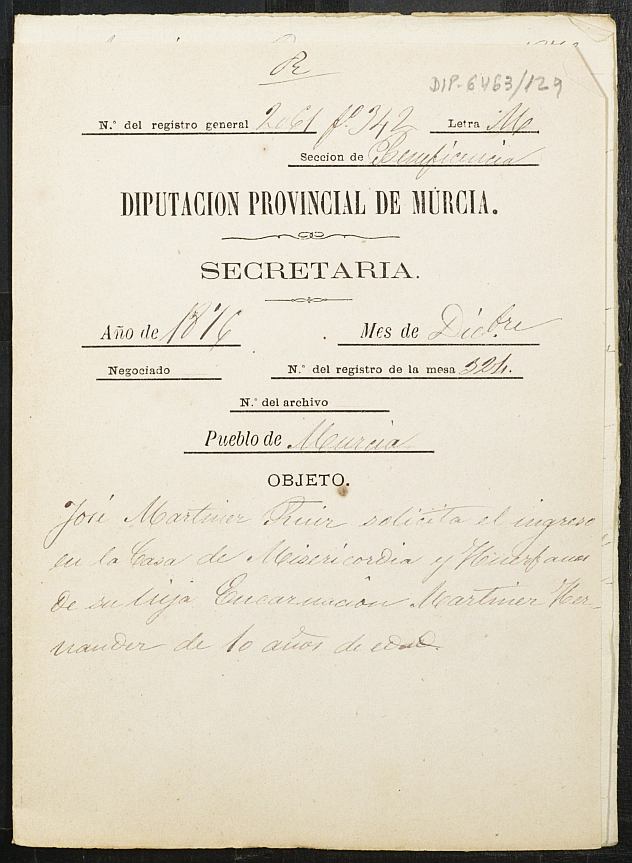 DIP-6463/129
N.º del registro general 2061 fº 342 Letra M
Seccion de Beneficencia
DIPUTACION PROVINCIAL DE MURCIA.
SECRETARIA.
Año de 1876 Mes de Dicbre
Negociado N.º del registro de la mesa 324.
N.º del archivo
Pueblo de Murcia
OBJETO.
José Martinez Ruiz solicita el ingreso
en la Casa de Misericordia y Huerfanos
de su hija Encarnación Martinez Her-
nandez de 10 años de edad.